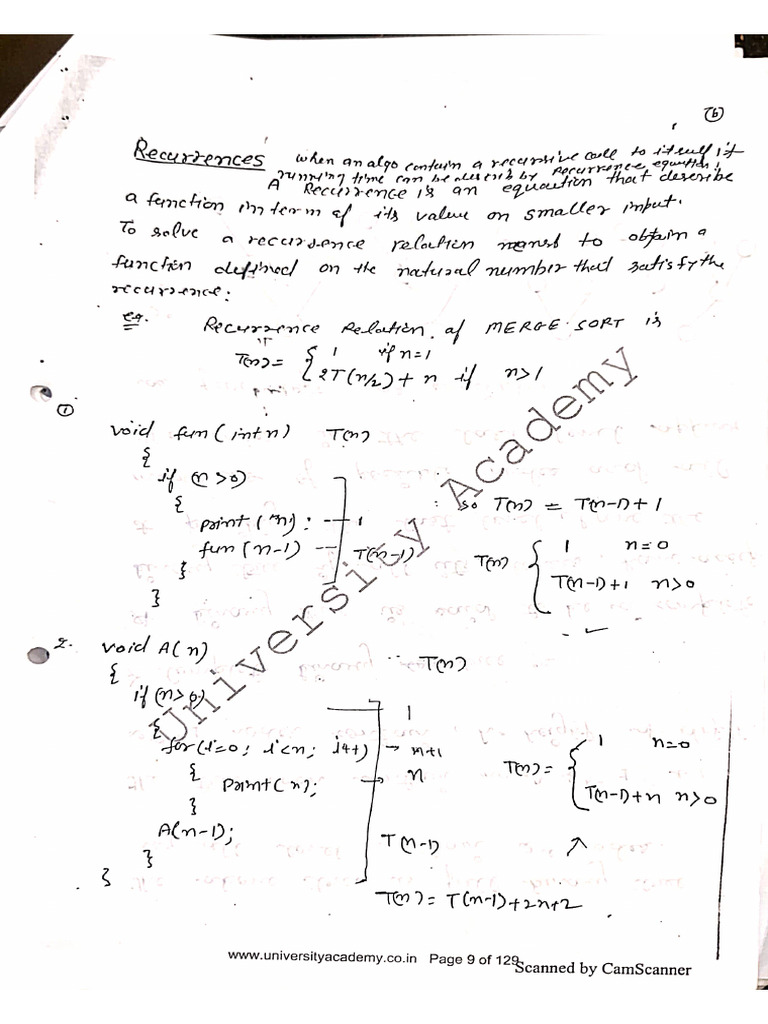 (6)
Recurrences when an algo contain a recursive call to itself it
running time can be describ by recurrence equation,
A Recurrence is an equaution that describe
a function in term of its value on smaller input.
To solve a recurrence relation means to obtain a
function defined on the natural number that satisfy the
recurrence:
eg. Recurrence Relation of MERGE SORT is
T(n) = { 1 if n=1
2T(n/2) + n if n>1
①
void fun (int n) T(n)
{
if (n>0)
{
print (n): 1 : so T(n) = T(n-1) + 1
fun (n-1) T(n-1) T(n) { 1 n=0
} T(n-1)+1 n>0
}
2. void A(n) T(n)
{
if (n>0) 1
{
for (i=0; i<n; i++) → n+1 T(n) = { 1 n=0
{
print(n); → n T(n-1)+n n>0
}
A(n-1); T(n-1)
}
}
T(n) = T(n-1)+2n+2
University Academy
www.universityacademy.co.in Page 9 of 129
Scanned by CamScanner